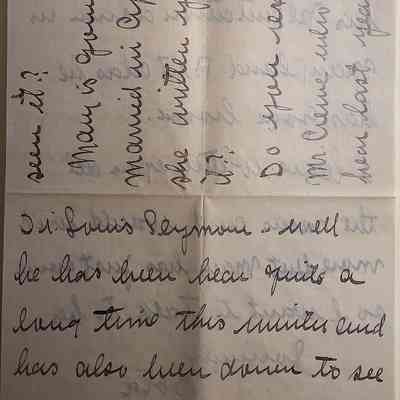 seen it?
Mary is goin
married in Ap
she written y
it?
Do you re
Mr. who
hear last yea
Louis Seymour well
he has been hear quite a
long time this winter and
has also been down to see